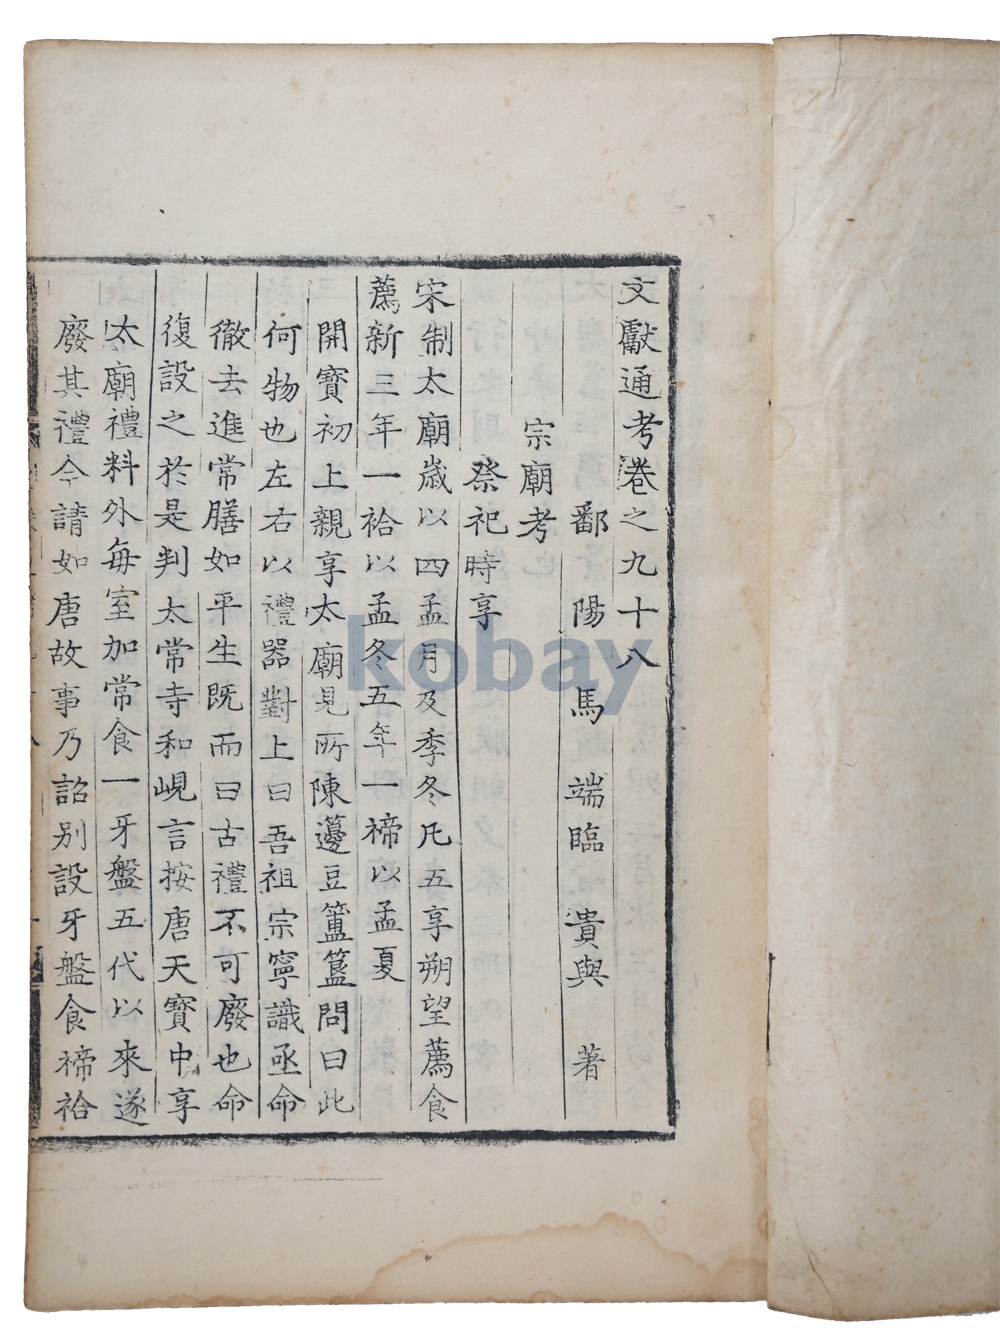 文獻通考卷之九十八
鄱陽馬端臨貴與著
宗廟考
祭祀時享
宋制太廟歲以四孟月及季冬凡五享朔望薦食
薦新三年一祫以孟冬五年一禘以孟夏
開寶初上親享太廟見所陳籩豆簠簋問曰此
何物也左右以禮器對上曰吾祖宗寧識亟命
徹去進常膳如平生既而曰古禮不可廢也命
復設之於是判太常寺和峴言按唐天寶中享
太廟禮料外每室加常食一牙盤五代以來遂
廢其禮今請如唐故事乃詔別設牙盤食禘祫
kobay